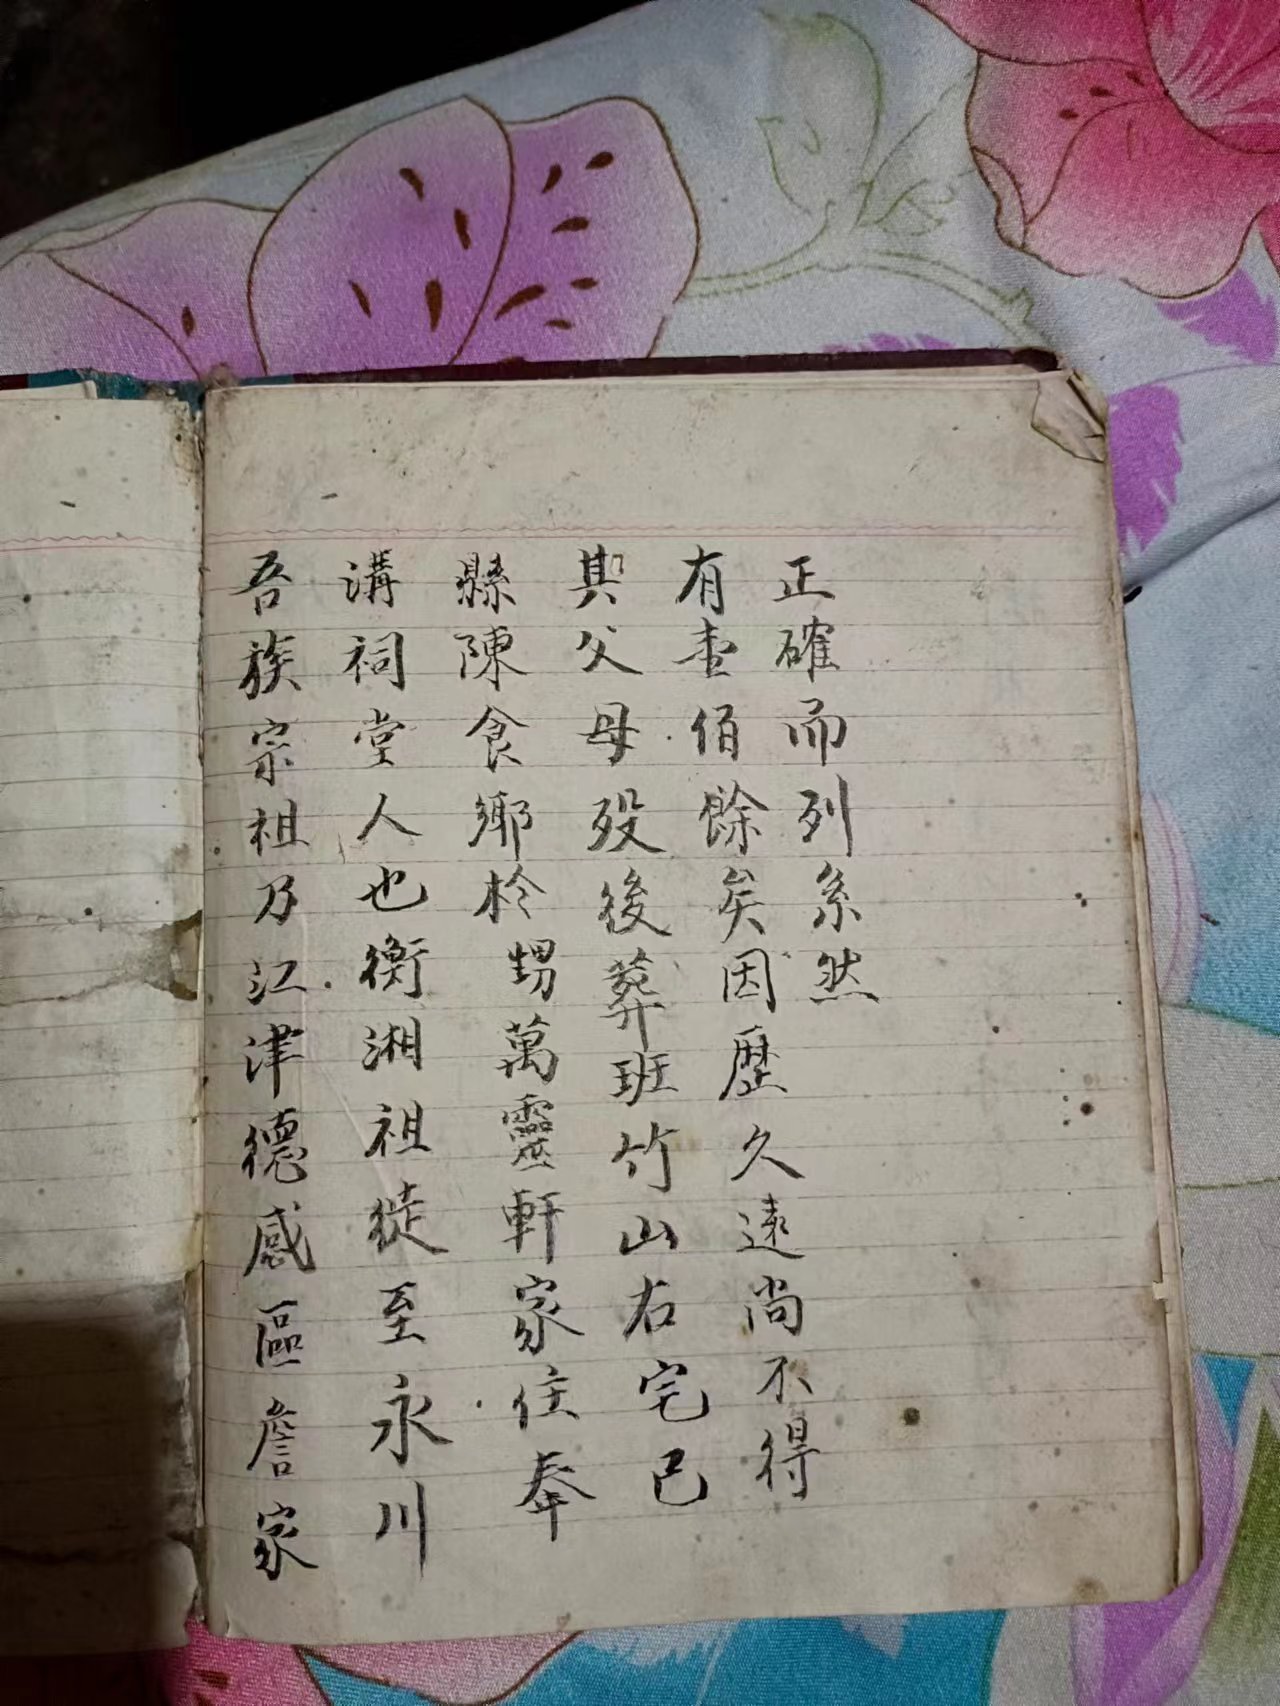 吾族宗祖乃江津德感區詹家
溝祠堂人也衡湘祖徙至永川
縣陳食鄉於甥萬靈軒家住奉
其父母歿後葬班竹山右宅已
有壹佰餘矣因歷久遠尚不得
正確而列系然